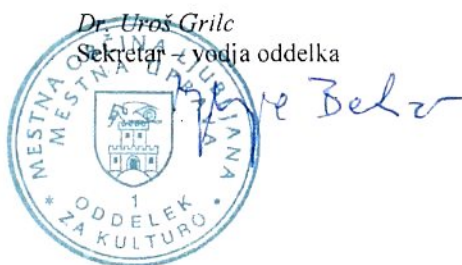 Dr. Uroš Grilc
Sekretar – vodja oddelka
MESTNA OBČINA LJUBLJANA
MESTNA UPRAVA
1
ODDELEK
ZA KULTURO